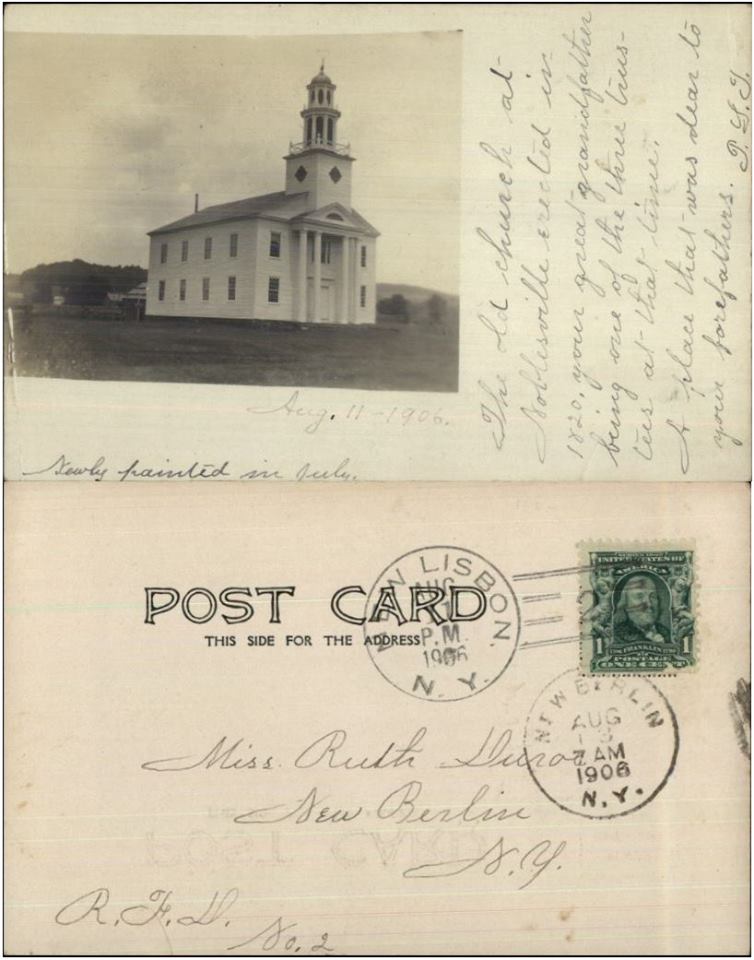 The old church at
Noblesville erected in
1820, your great grandfather
being one of the three trus-
tees at that time.
A place that was dear to
your forefathers.
Aug. 11-1906.
Newly painted in July.
POST CARD
THIS SIDE FOR THE ADDRESS
NEW LISBON.
AUG
11
P.M.
1906
N.Y.
SERIES 1902
UNITED STATES OF
AMERICA
1 FRANKLIN 1
POSTAGE
ONE CENT
NEW BERLIN
AUG
7 AM
1906
N.Y.
Miss. Ruth
New Berlin
N.Y.
R.F.D.
No. 2